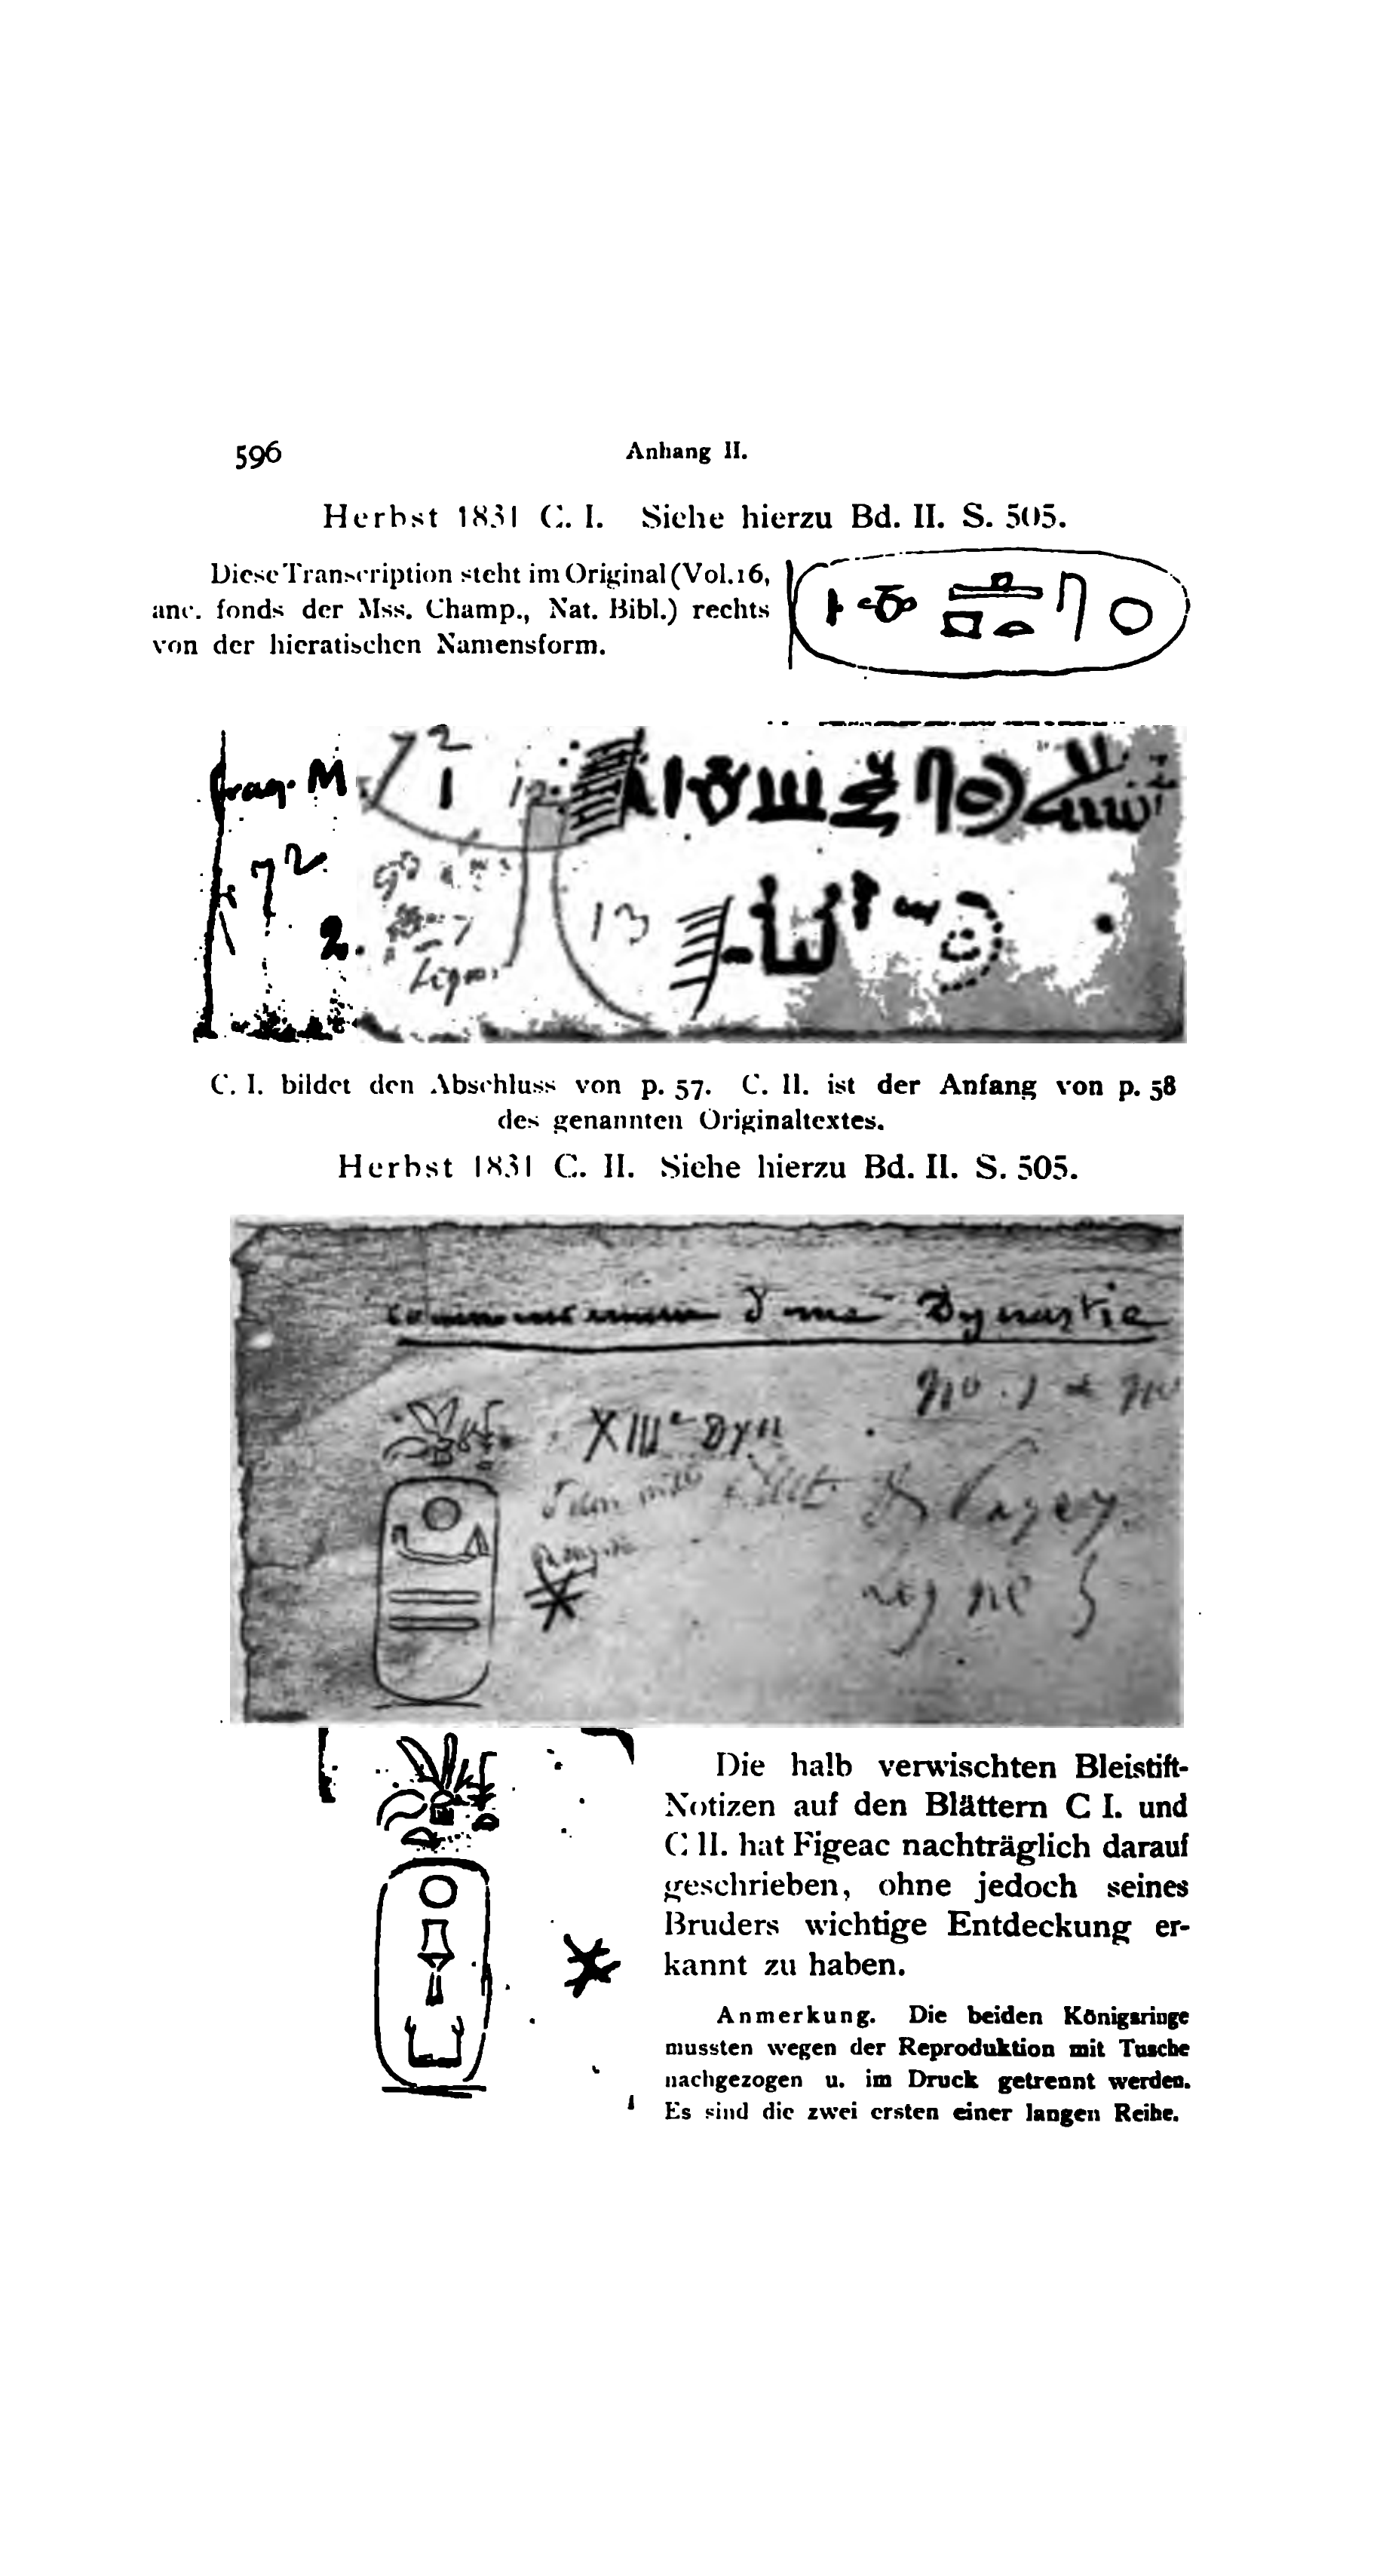 596
Anhang II.
Herbst 1831 C. I. Siehe hierzu Bd. II. S. 505.
Diese Transcription steht im Original (Vol. 16,
anc. fonds der Mss. Champ., Nat. Bibl.) rechts
von der hieratischen Namensform.
frag. M
72
1
12
72
2.
13
C. I. bildet den Abschluss von p. 57. C. II. ist der Anfang von p. 58
des genannten Originaltextes.
Herbst 1831 C. II. Siehe hierzu Bd. II. S. 505.
commencement d'une Dynastie
XIIIe Dyn
Die halb verwischten Bleistift-
Notizen auf den Blättern C I. und
C II. hat Figeac nachträglich darauf
geschrieben, ohne jedoch seines
Bruders wichtige Entdeckung er-
kannt zu haben.
Anmerkung. Die beiden Königsringe
mussten wegen der Reproduktion mit Tusche
nachgezogen u. im Druck getrennt werden.
Es sind die zwei ersten einer langen Reihe.